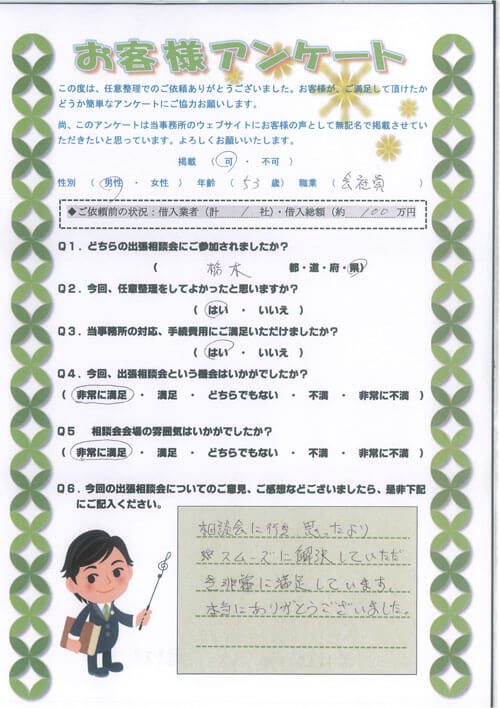 お客様アンケート
この度は、任意整理でのご依頼ありがとうございました。お客様が、ご満足して頂けたか
どうか簡単なアンケートにご協力お願いします。
尚、このアンケートは当事務所のウェブサイトにお客様の声として無記名で掲載させてい
ただきたいと思っています。よろしくお願いいたします。
掲載 （ 可 ・ 不可 ）
性別 （ 男性 ・ 女性 ） 年齢 （ 53 歳） 職業 （ 会社員 ）
◆ご依頼前の状況：借入業者（計 1 社）・借入総額（約 100 万円
Q１．どちらの出張相談会にご参加されましたか？
（ 栃木 都・道・府・県）
Q２．今回、任意整理をしてよかったと思いますか？
（ はい ・ いいえ ）
Q３．当事務所の対応、手続費用にご満足いただけましたか？
（ はい ・ いいえ ）
Q４．今回、出張相談会という機会はいかがでしたか？
（ 非常に満足 ・ 満足 ・ どちらでもない ・ 不満 ・ 非常に不満 ）
Q５ 相談会会場の雰囲気はいかがでしたか？
（ 非常に満足 ・ 満足 ・ どちらでもない ・ 不満 ・ 非常に不満 ）
Q６．今回の出張相談会についてのご意見、ご感想などございましたら、是非下記
にご記入ください。
相談会に行き、思ったより
スムーズに解決していただ
き非常に満足しています。
本当にありがとうございました。